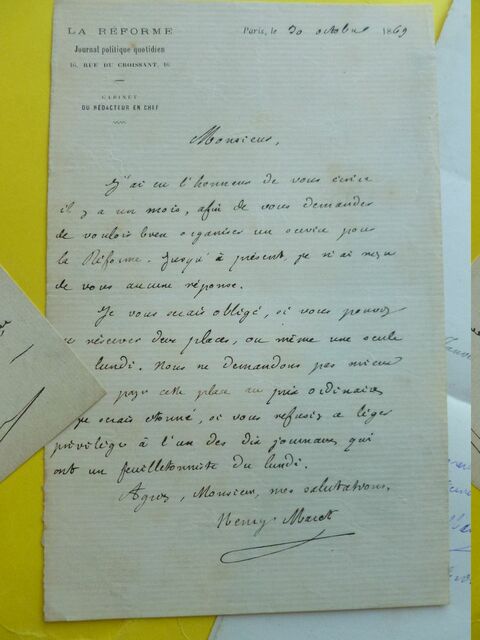 LA RÉFORME
Journal politique quotidien
16, RUE DU CROISSANT, 16
CABINET
DU RÉDACTEUR EN CHEF
Paris, le 30 octobre 1869
Monsieur,
J'ai eu l'honneur de vous écrire
il y a un mois, afin de vous demander
de vouloir bien organiser un service pour
la Réforme. Jusqu'à présent, je n'ai reçu
de vous aucune réponse.
Je vous serais obligé, si vous pouvez
me réserver deux places, ou même une seule
lundi. Nous ne demandons pas mieux
payer cette place au prix ordinaire
je serais étonné, si vous refusiez ce léger
privilège à l'un des dix journaux qui
ont un feuilletonniste du lundi.
Agréez, Monsieur, mes salutations.
Henry Maret